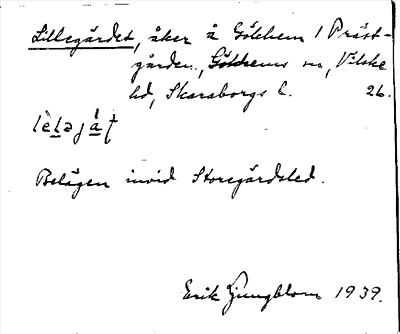 Lillegärdet, åker å Gökhem 1 Präst-
gården, Gökhems sn, Vilske
hd, Skaraborgs l. 26.
Belägen invid Storegärdsled.
Erik Ljungblom 1939.